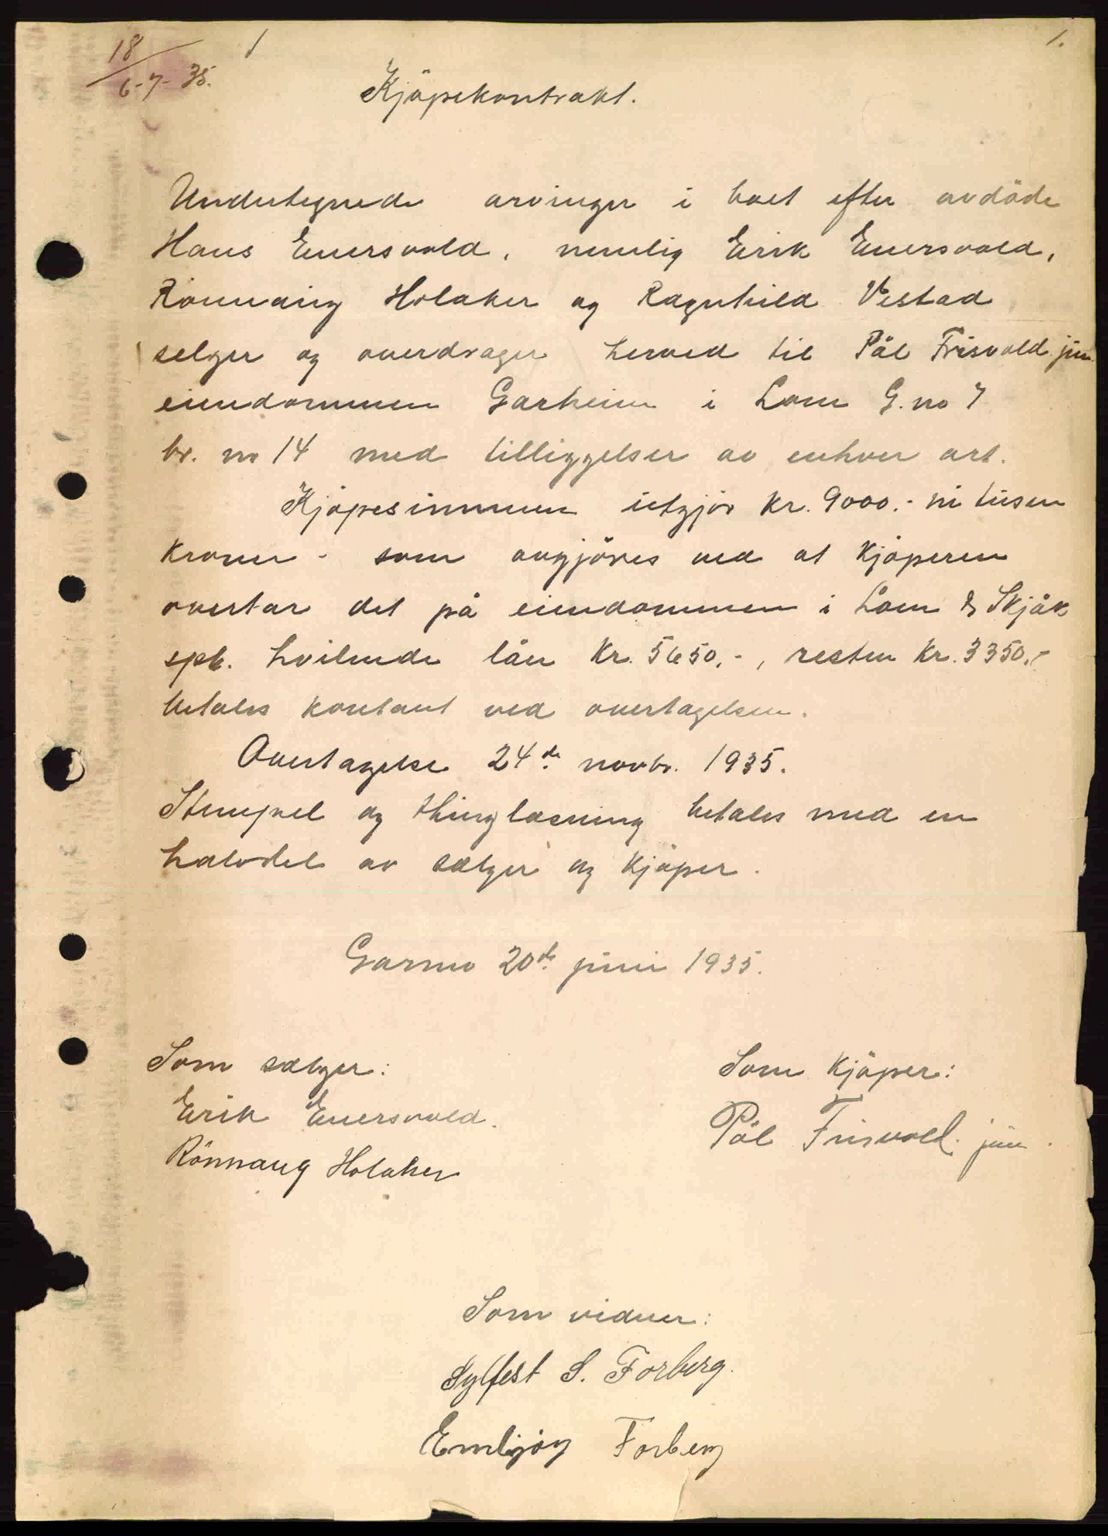 18/6-7-35.
1
1.
Kjöpekontrakt.
Undertegnede arvinger i boet efter avdöde
Hans Enersvold, nemlig Erik Enersvold,
Rönnaug Holaker og Ragnhild Vestad
selger og overdrager herved til Pål Frisvold jun
eiendommen Garheim i Lom G. no 7
br. no 14 med tilliggelser av enhver art.
Kjöpesummen utgjör kr. 9000.- ni tusen
kroner - som avgjöres ved at kjöperen
overtar det på eiendommen i Lom & Skjåk
spb. hvilende lån kr. 5650,-, resten kr. 3350,-
betales kontant ved overtagelsen.
Overtagelse 24de novbr. 1935.
Stempel og thinglæsning betales med en
halvdel av sælger og kjöper.
Garmo 20de juni 1935.
Som sælger:
Erik Enersvold.
Rönnaug Holaker
Som kjöper:
Pål Frisvold. jun.
Som vidner:
Sylfest S. Forberg.
Embjög Forberg